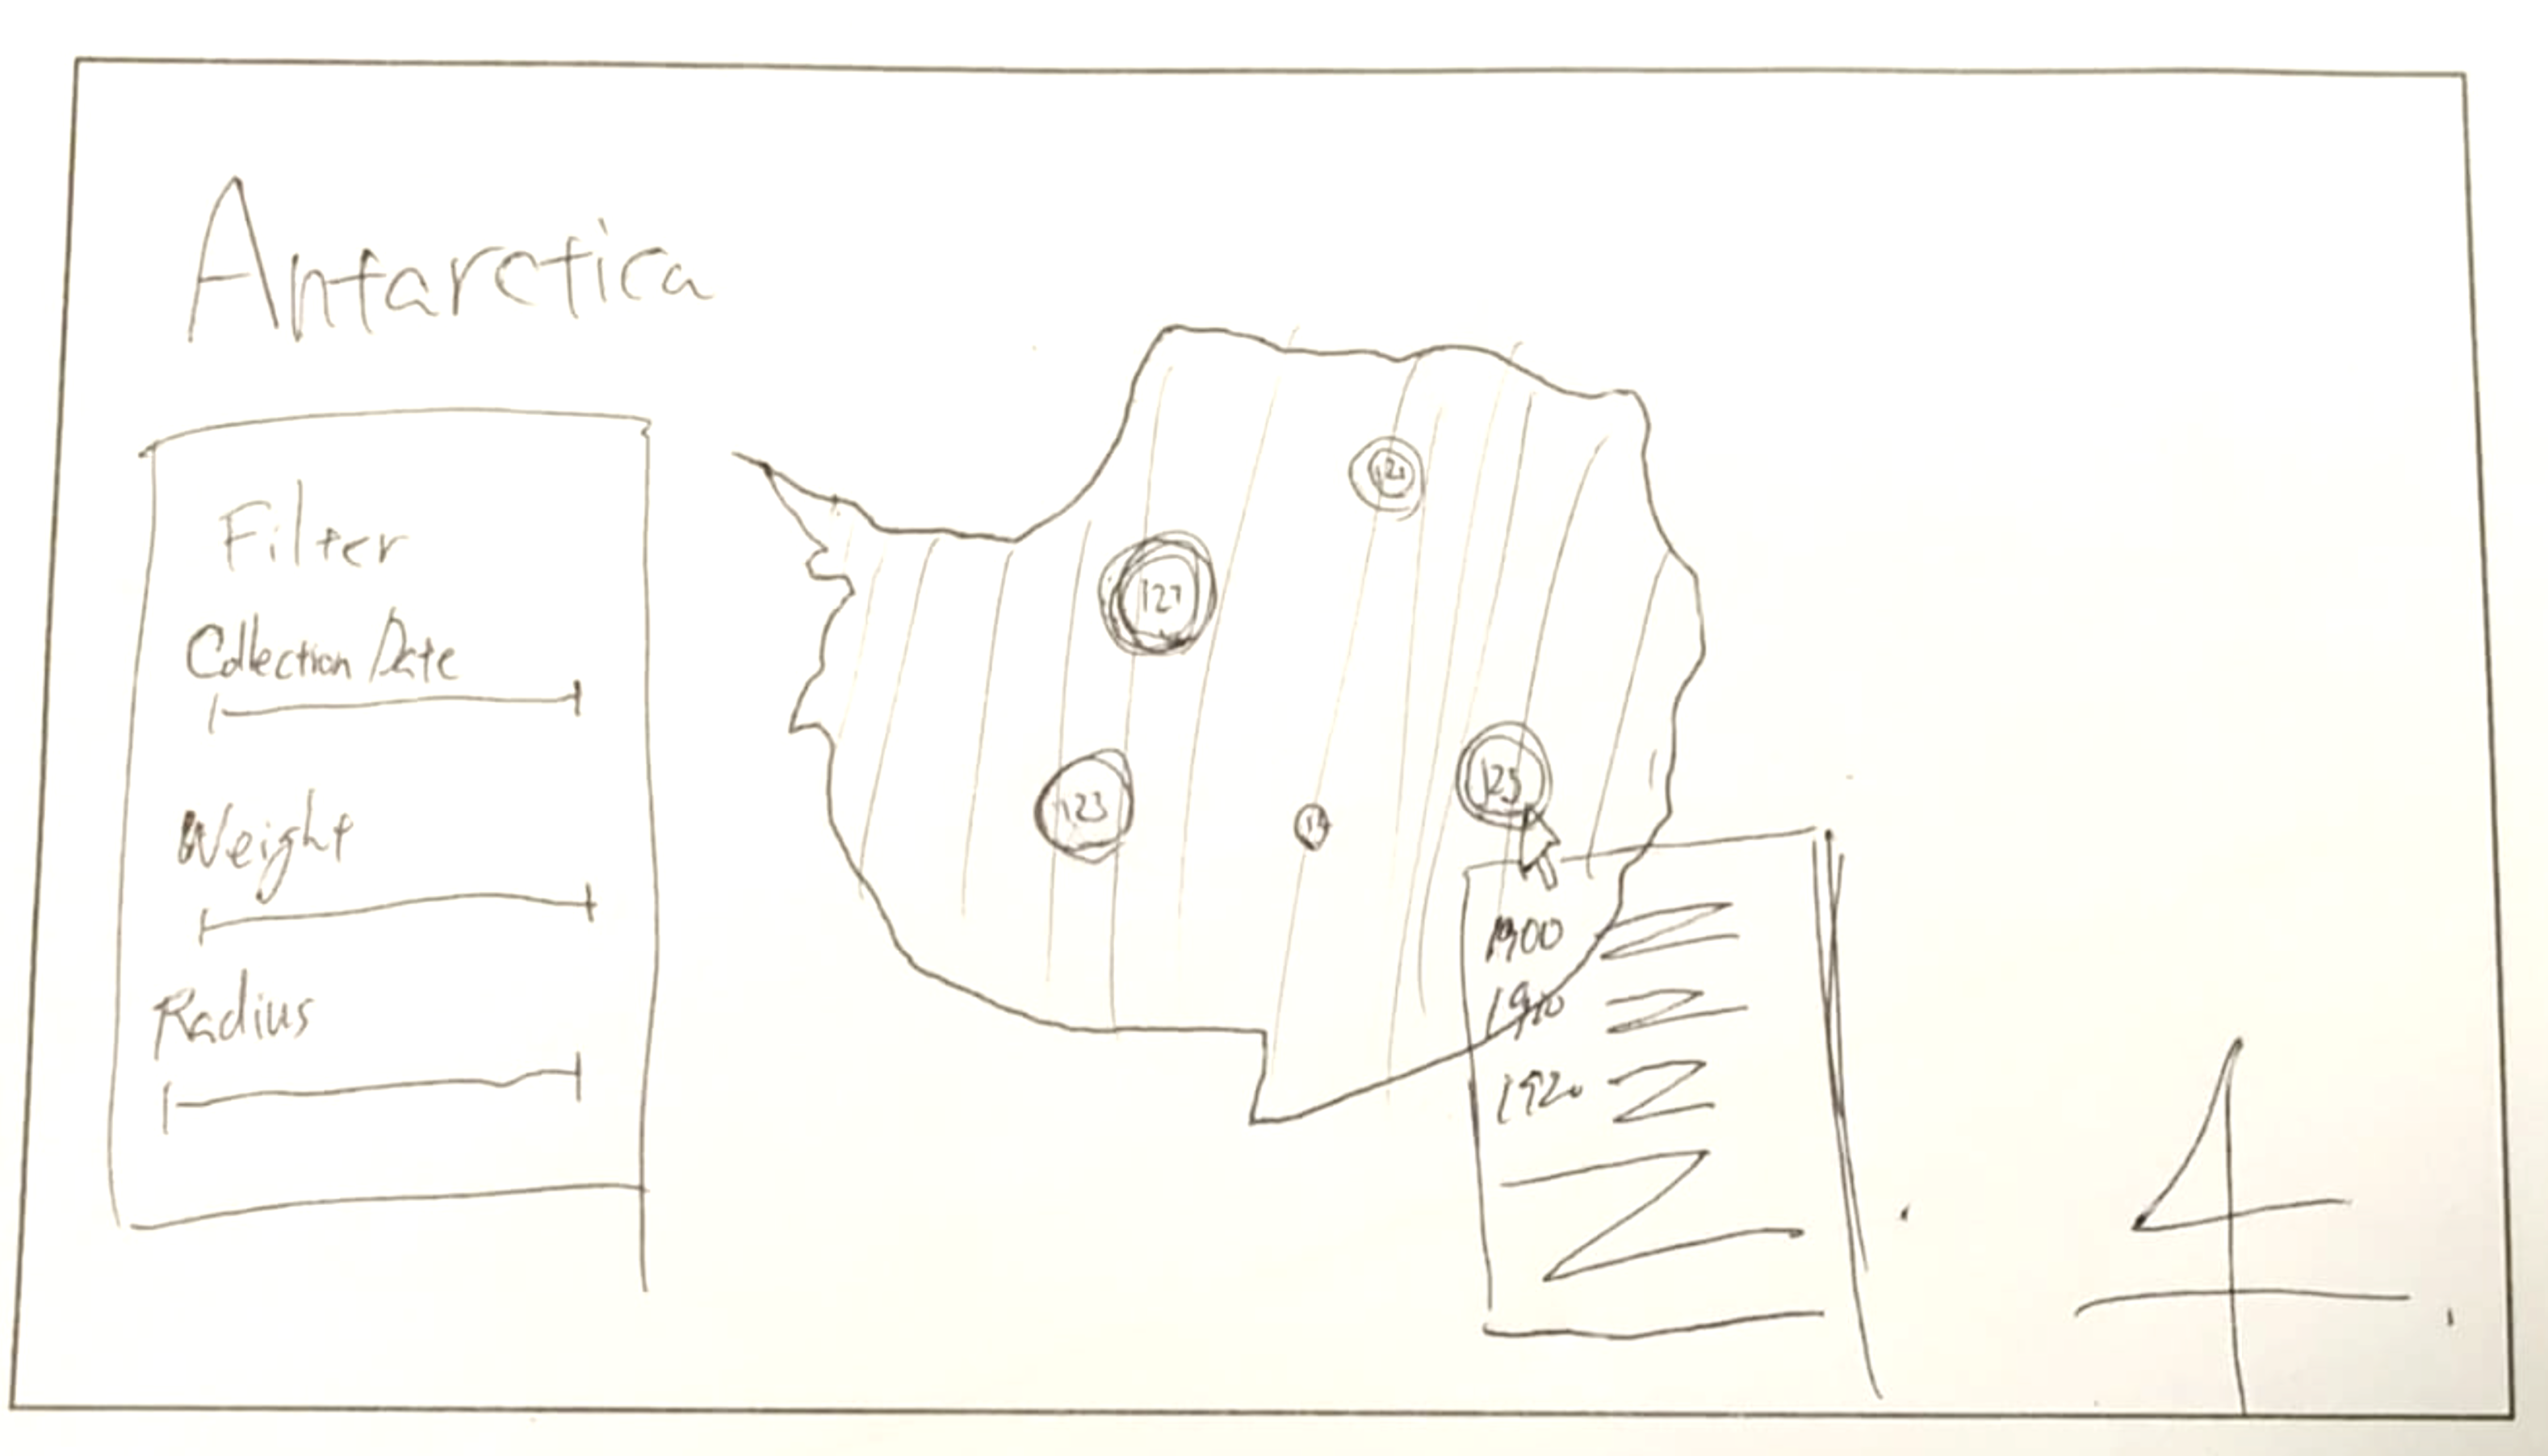 Antarctica
Filter
Collection Date
Weight
Radius
127
123
125
1900
1910
1920
4